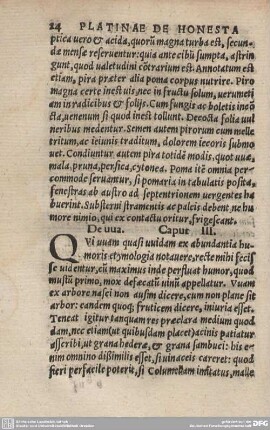 24 PLATINAE DE HONESTA
ptica uero & acida, quorũ magna turba est, secun-
dæ mensæ reseruentur: quia ante cibũ sumpta, astrin
gunt, quod ualetudini cõtrarium est. Annotatum est
etiam, pira præter alia poma corpus nutrire. Piro
magna certe inest uis, nec in fructu solum, uerum eti
am in radicibus & folijs. Cum fungis ac boletis ineò
cta, uenenum si quod inest tollunt. Decocta folia uul
neribus medentur. Semen autem pirorum cum melle
tritum, ac ieiunis traditum, dolorem iecoris submo
uet. Condiuntur autem pira totidẽ modis, quot uuæ
mala, pruna, persica, cytonea. Poma itẽ omnia per
commode seruantur, si pomaria in tabulatis posita,
fenestras ab austro ad septentrionem uergentes ha
buerint. Substerni stramentis ac paleis debent, ne hu
more nimio, qui ex contactu oritur, frigescant.
De uua. Caput III.
QVi uuam quasi uuidam ex abundantia hu
moris etymologia notauere, recte mihi fecis
se uidentur, cũ maximus inde perfluat humor, quod
mustũ primo, mox defæcatũ uinũ appellatur. Vuam
ex arbore nasci non ausim dicere, cum non plane sit
arbor: eandem quoq; fruticem dicere, iniuria esset.
Teneat igitur tanquam res præclara medium quod
dam, nec etiam (ut quibusdam placet) acinis patiatur
ascribi, ut grana hederæ, & grana sambuci: his e-
nim omnino dißimilis esset, si uinaceis careret: quod
fieri perfacile poterit, si Columellam imitatus, malle